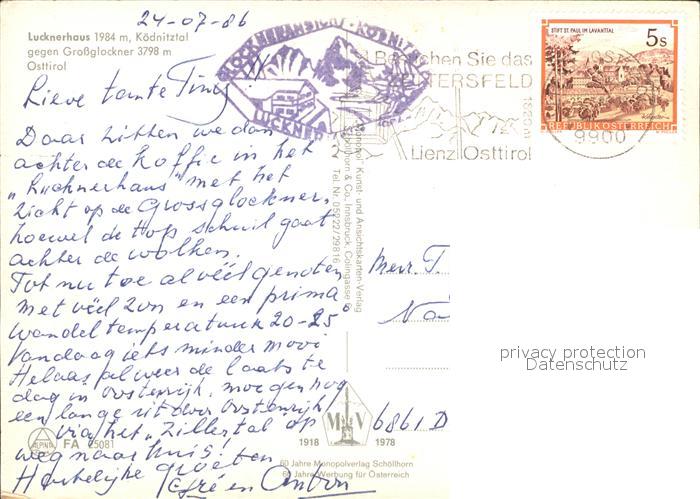 24-07-86
Lucknerhaus 1984 m, Ködnitztal
gegen Großglockner 3798 m
Osttirol
Lieve tante Tiny !!!
Daar zitten we dan
achter de koffie in het
"Lucknerhaus" met het
zicht op de Grossglockner,
hoewel de top schuil gaat
achter de wolken.
Tot nu toe al véél genoten
met véél zon en een prima
wandeltemperatuur 20-25
Vandaag iets minder mooi
Helaas alweer de laatste
dag in Oostenrijk, morgen nog
een lange rit door Oostenrijk
via het "Zillertal" op
weg naar huis!
Hartelijke groeten
en Anton
GLOCKNERANSICHT · KÖDNITZ
LUCKNER
Besuchen Sie das
TERSFELD
1829m
Lienz Osttirol
STIFT ST. PAUL IM LAVANTTAL
5s
REPUBLIK ÖSTERREICH
9900
"Monopol" Kunst- und Ansichtskarten-Verlag
Schöllhorn & Co., Innsbruck, Colingasse 6
Tel. Nr. 05222/29816
Mevr. T.
Na
6861 D
privacy protection
Datenschutz
ALPINA
FA 25081
M V
1918 1978
60 Jahre Monopolverlag Schöllhorn
60 Jahre Werbung für Österreich